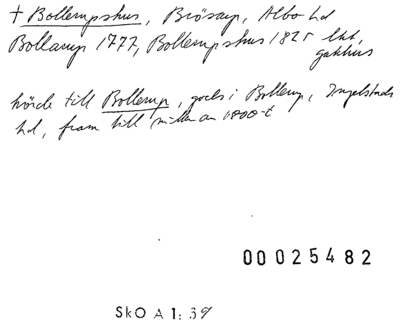 † Bollerupshus, Brösarp, Albo hd
Bollarup 1777, Bollerupshus 1825 lht,
gatehus
hörde till Bollerup, gods i Bollerup, Ingelstads
hd, fram till mitten av 1800-t
00025482
SkO A 1: 39